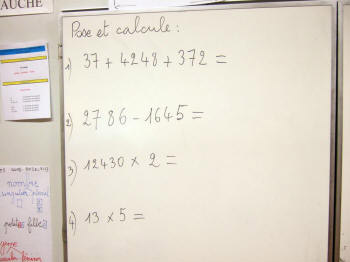 AUCHE
Pose et calcule :
1) 37 + 4248 + 372 =
2) 2786 - 1645 =
3) 12430 × 2 =
4) 13 × 5 =
nombre
singulier pluriel
petites filles
genre